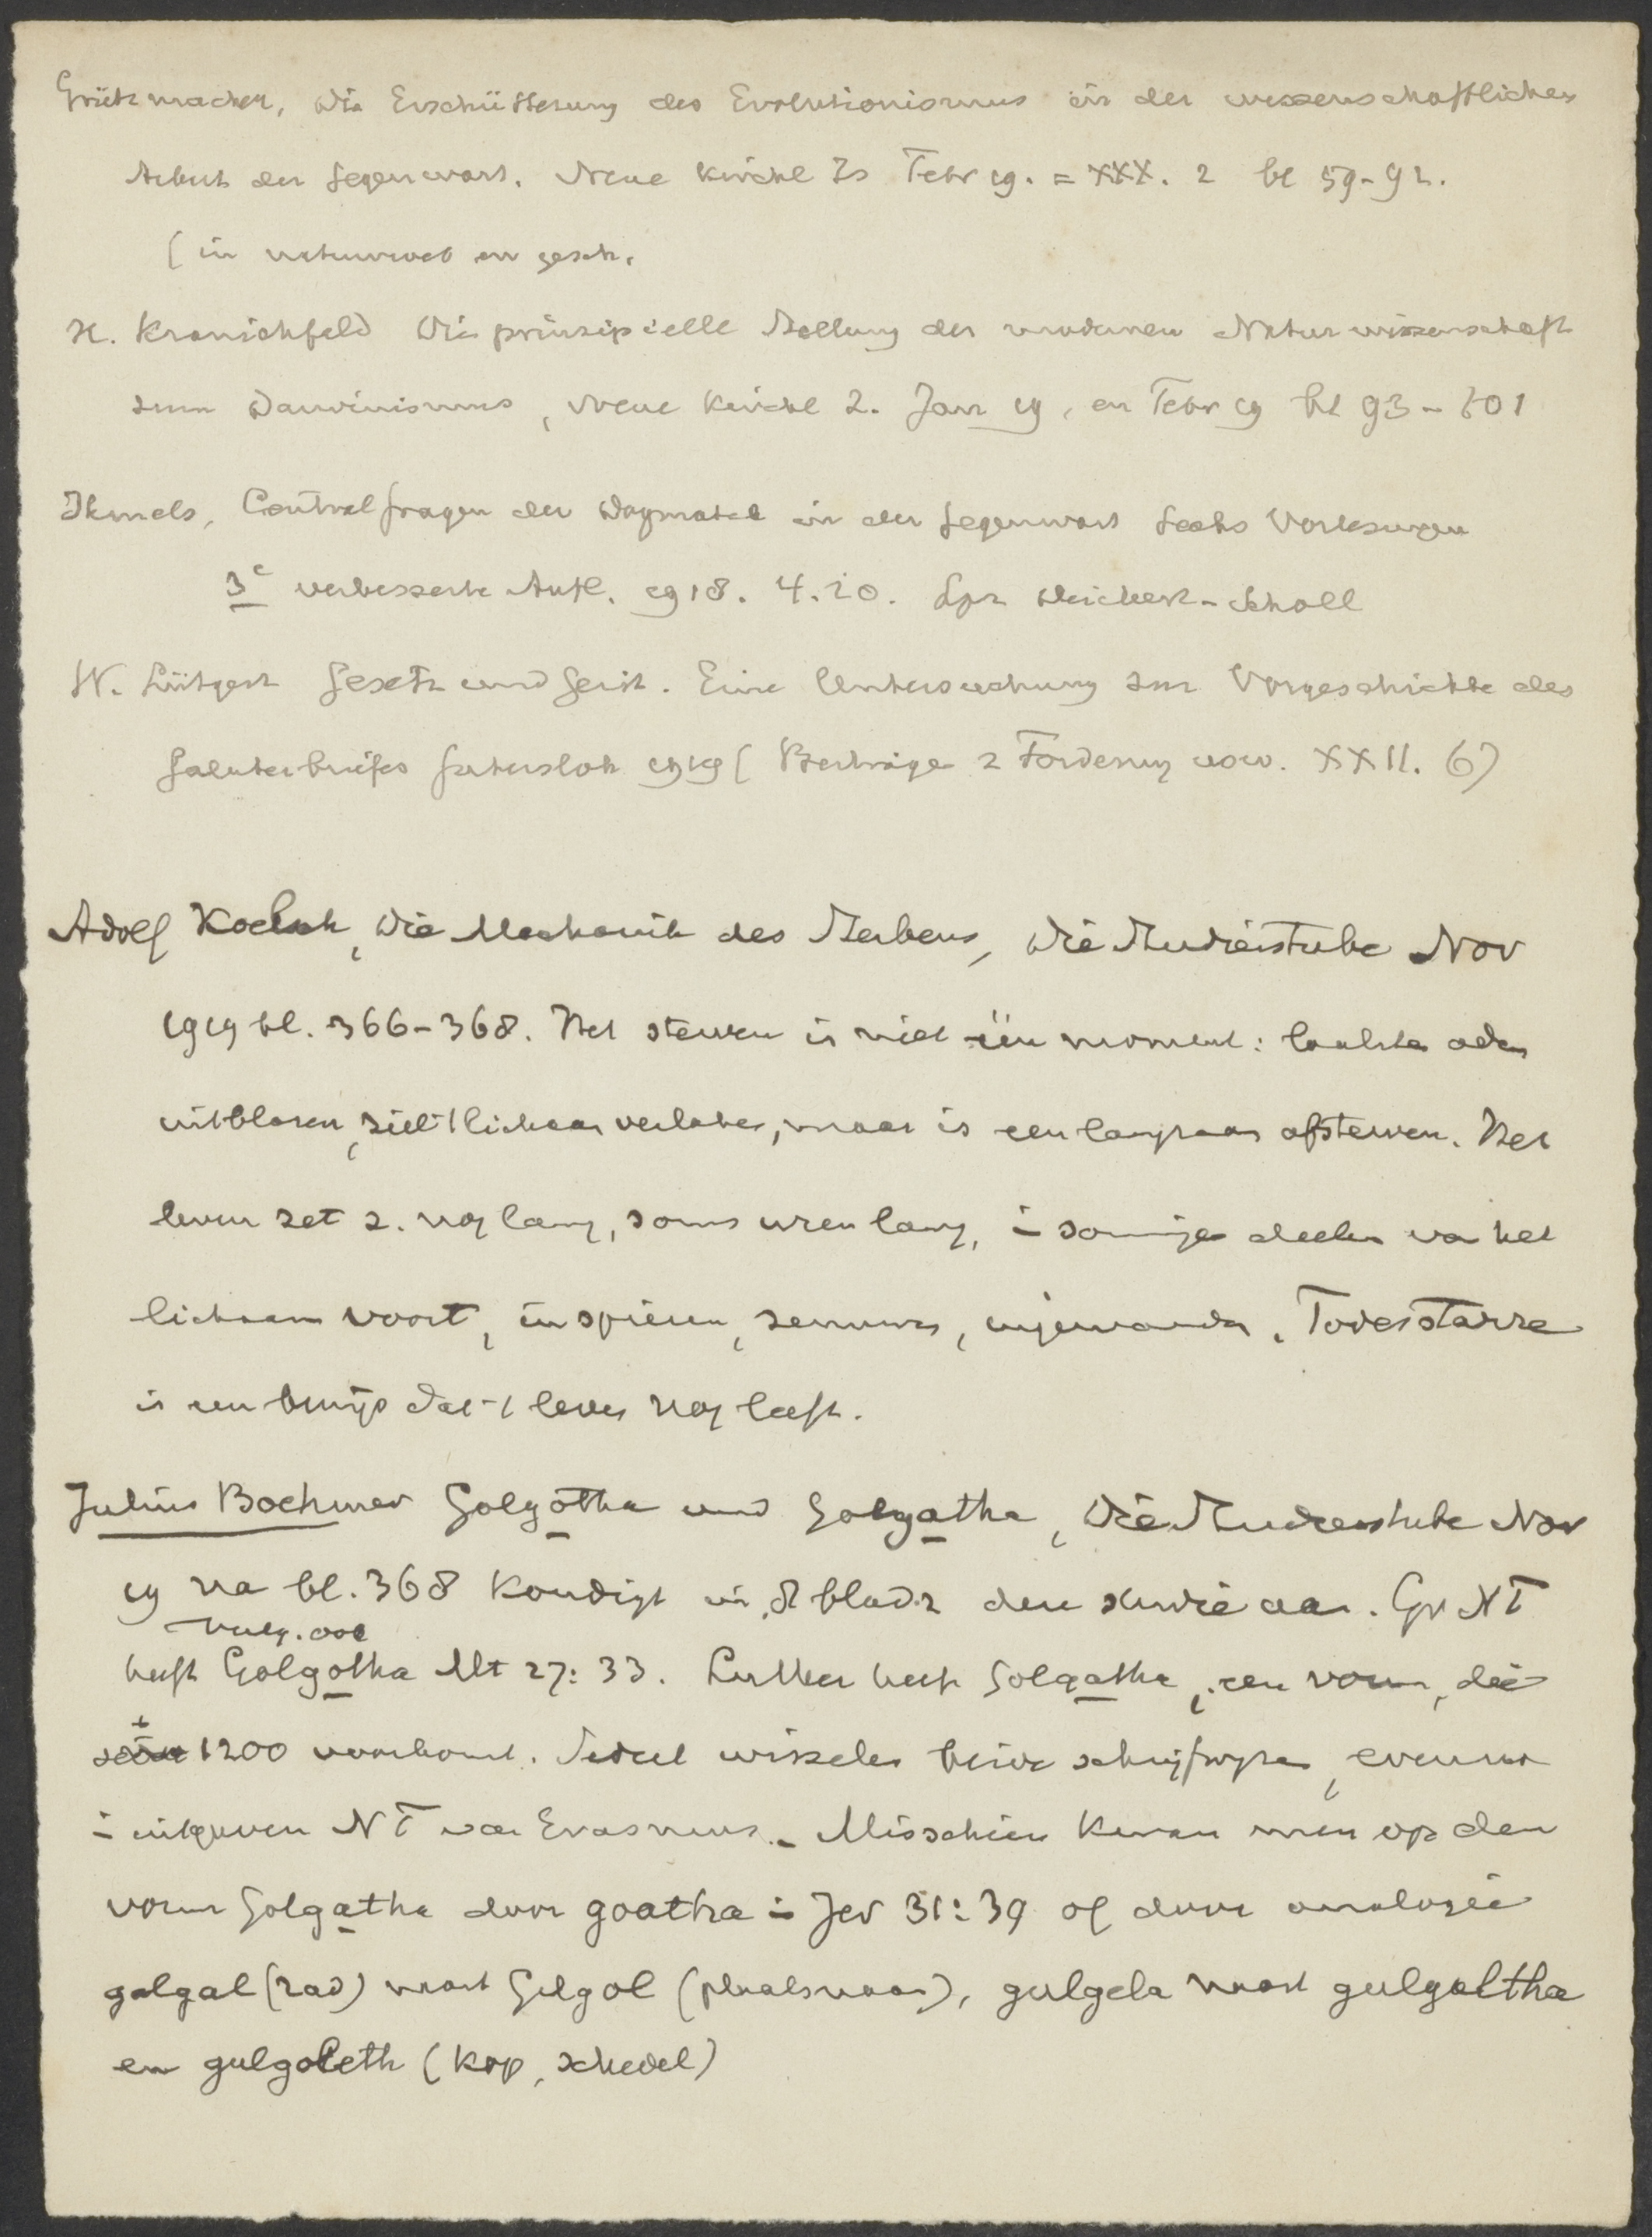 Grützmacher, Die Erschütterung des Evolutionismus in der wissenschaftlichen
Arbeit der Gegenwart. Neue Kirchl Zs Febr 19. = XXX. 2 bl 59-92.
(in natuurwet en gesch.
H. Kranichfeld Die prinzipielle Stellung der modernen Naturwissenschaft
zum Darwinismus, Neue Kirchl Z. Jan 19, en Febr 19 bl 93-101
Ihmels, Centralfragen der Dogmatik in der Gegenwart Sechs Vorlesungen
3e verbesserte Aufl. 1918. 4.20. Lpz Deichert-Scholl
W. Lütgert Gesetz und Geist. Eine Untersuchung zur Vorgeschichte des
Galaterbriefes Gütersloh 1919 (Beiträge z Förderung usw. XXII. 6)
Adolf Koelsch, Die Mechanik des Sterbens, Die Studierstube Nov
1919 bl. 366-368. Het sterven is niet één moment: laatste adem
uitblazen, ziel 't lichaam verlaten, maar is een langzaam afsterven. Het
leven zet z. nog lang, soms uren lang, in sommige deelen van het
lichaam voort, in spieren, zenuwen, ingewanden. Todesstarre
is een bewijs dat 't leven nog leeft.
Julius Boehmer Golgotha und Golgatha, Die Studierstube Nov
19 na bl. 368 kondigt in 8 bladz deze studie aan. Gr NT
Vulg. ook
heeft Golgotha Mt 27:33. Luther heeft Golgatha, een vorm, die
± 1200 voorkomt. Sedert wisselen beide schrijfwijzen, evenzoo
in uitgaven NT van Erasmus. - Misschien kwam men op den
vorm Golgatha door goatha in Jer 31:39 of door analogie
galgal (rad) naast Gilgal (plaatsnaam), gulgela naast gulgaltha
en gulgoleth (kop, schedel)